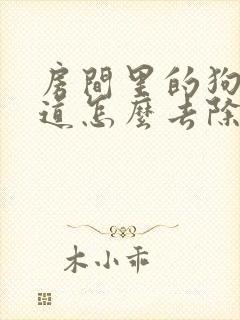 房間里的狗
道怎麼去除
木小乖